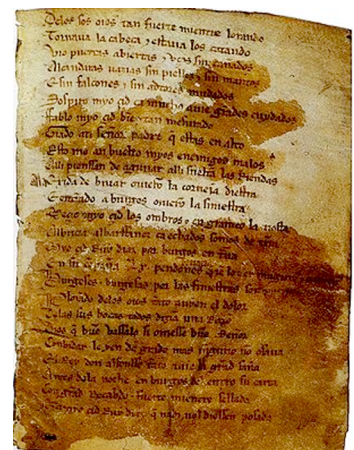 Delos sos oios tan fuerte mientre lorando
Tornaua la cabeça & estaua los catando
Vio puertas abiertas & vços sin cañados
Alcandaras uazias sin pielles & sin mantos
E sin falcones & sin adtores mudados
Sospiro myo çid ca mucho auie grandes cuydados
Fablo myo çid bien & tan mesurado
Grado ati señor padre q estas en alto
Esto me an buelto myos enemigos malos
Alli pienssan de aguijar alli sueltan las Riendas
Ala Exida de biuar ouierō la corneja diestra
E entrando a burgos ouierō la siniestra
Meçio myo çid los ombros & engrameo la tiesta
Albricia albarffanez ca echados somos de tierra
Myo çid Ruy diaz por burgos entraua
En su compaña Lx pendones
Burgeses & burgesas por las finiestras son
Plorando delos oios tanto auyen el dolor
Delas sus bocas todos dizian una Razon
Dios q buē vassalo si ouiesse buē Señor
Conbidar le yen de grado mas ninguno no osaua
El Rey don alfonsso tanto auie la grād saña
Antes dela noche en burgos del entro su carta
Con grād Recabdo & fuerte mientre sellada
Que a myo çid Ruy diaz q nadi nol diessen posada